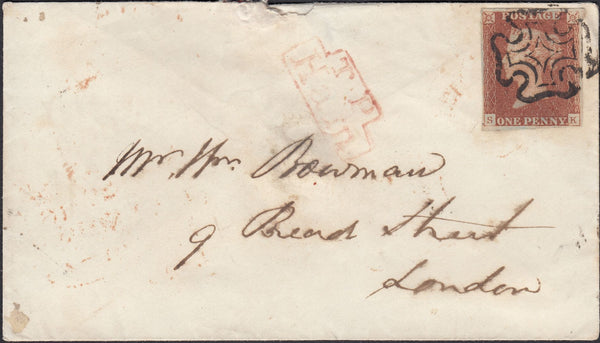 POSTAGE
S K
ONE PENNY
T.P
Mr. Wm. Bowman
9 Bread Street
London